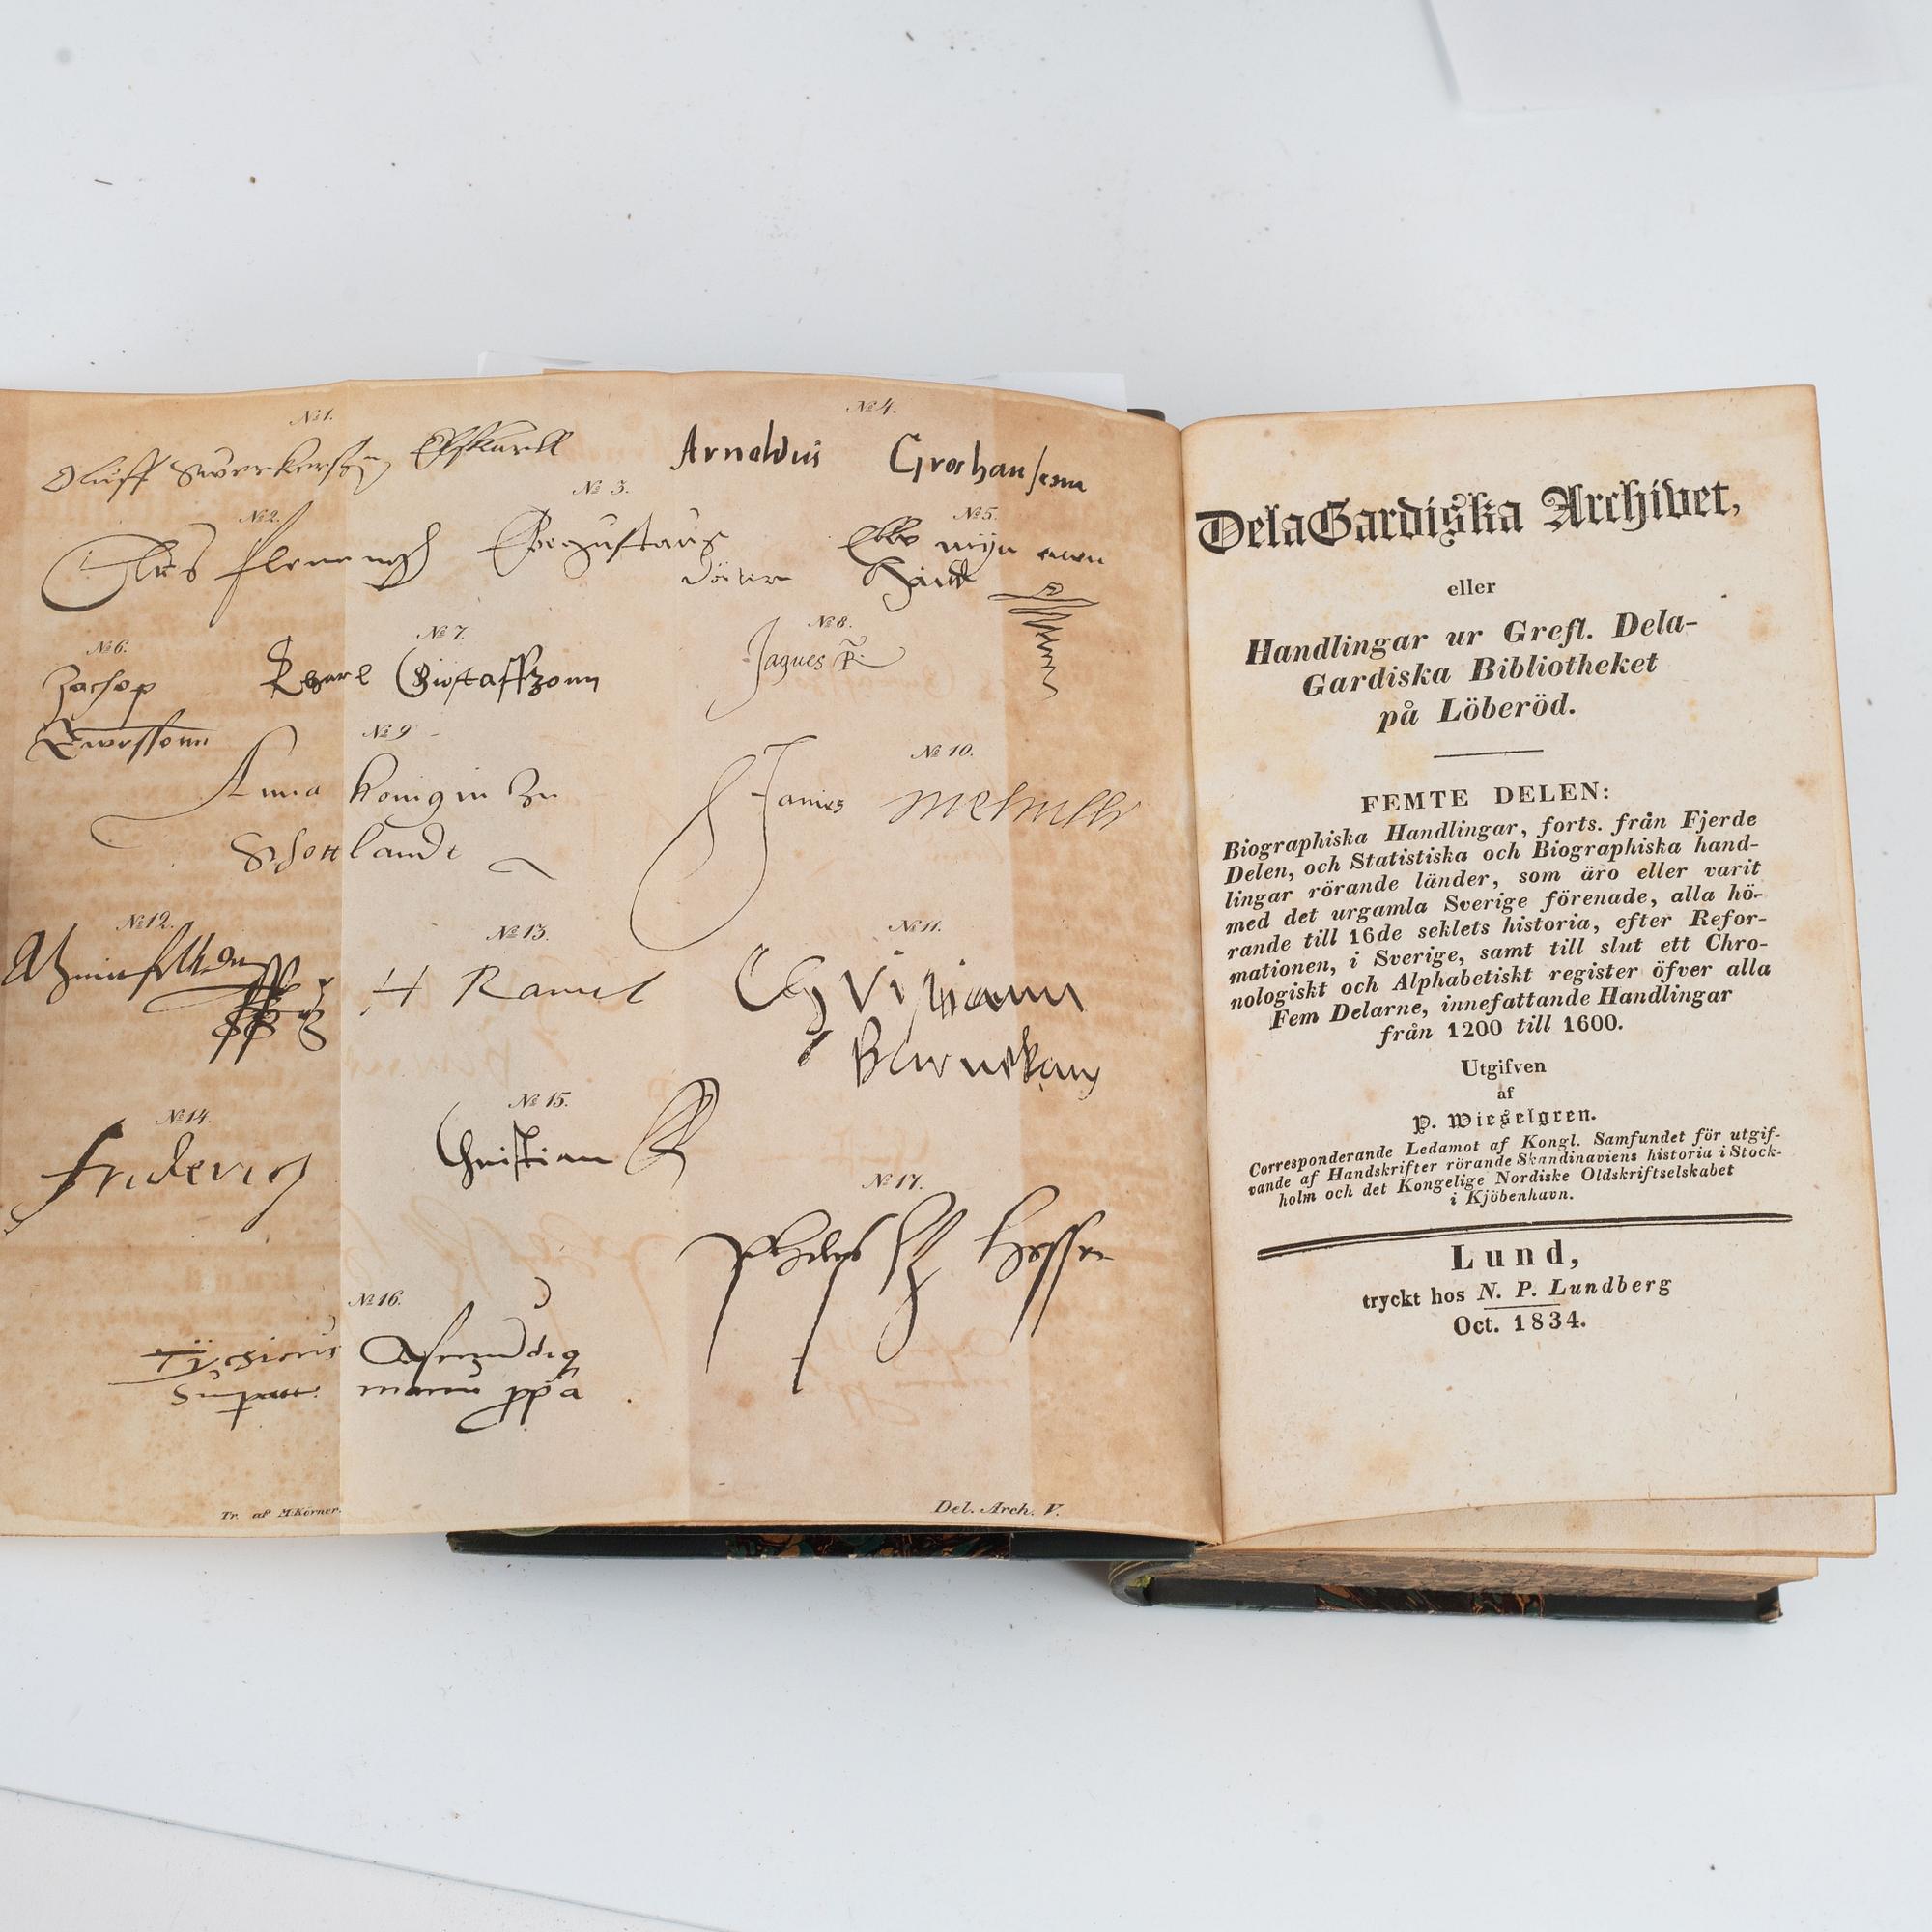 № 1.
Oluff Swerkersson
№ 4.
Arnoldus Groshansenn
№ 2.
Clas Flemingh
№ 3.
№ 5.
Ebbe mijn
Hand
№ 6.
№ 7.
Kharl Gustaffzonn
№ 8.
Jaques
№ 9
Anna Konigin Zu
Schottlandt
№ 10.
James
№ 12.
№ 13.
H Ramel
№ 11.
№ 14.
Friderich
№ 15.
Christian
№ 17.
Hessen
№ 16.
manu ppa
Tr. af M. Körner.
Del. Arch. V.
DelaGardiska Archivet,
eller
Handlingar ur Grefl. Dela-
Gardiska Bibliotheket
på Löberöd.
FEMTE DELEN:
Biographiska Handlingar, forts. från Fjerde
Delen, och Statistiska och Biographiska hand-
lingar rörande länder, som äro eller varit
med det urgamla Sverige förenade, alla hö-
rande till 16de seklets historia, efter Refor-
mationen, i Sverige, samt till slut ett Chro-
nologiskt och Alphabetiskt register öfver alla
Fem Delarne, innefattande Handlingar
från 1200 till 1600.
Utgifven
af
P. Wieselgren.
Corresponderande Ledamot af Kongl. Samfundet för utgif-
vande af Handskrifter rörande Skandinaviens historia i Stock-
holm och det Kongelige Nordiske Oldskriftselskabet
i Kjöbenhavn.
Lund,
tryckt hos N. P. Lundberg
Oct. 1834.